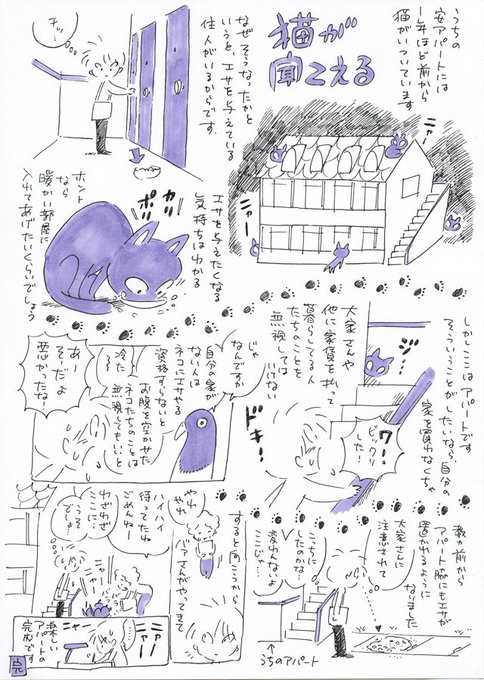 猫が
聞こえる
うちの
安アパートには
1年ほど前から
猫がいついています
ニャー
なぜそうなったかと
いうと、エサを与えている
住人がいるからです
チッ…
エサを与えたくなる
気持ちはわかる
カッ
ポッ
ホント
なら
暖かい部屋に
入れてあげたいくらいでしょう
しかしここはアパートです
そういうことがしたいなら、自分の
家を買わなくちゃ
大家さんや
他に家賃を払って
暮らしてる人
たちのことを
無視しては
いけない
ワ…
ビックリ
した…
ドキー
じゃ
なんですか
自分の家が
ない人は
ネコにエサやる
資格すらないと
お腹を空かせた
ネコたちのことは
無視してもいいと
冷た
あー
そーだよ
悪かったなー
数か月前から
アパート脇にもエサが
置かれるように
なりました
大家さんに
注意されて
こっちに
したのかな
変わんないよ
ここじゃ…
うちのアパート
すると向こうから
バアさんがやってきて
やれ
やれ
ハイハイ
待っててくれて
ごめんねー
わざわざ
ここに…
うそ
でしょ…
ニャー
ニャー
ニャー
楽しい
アパートの
完成です